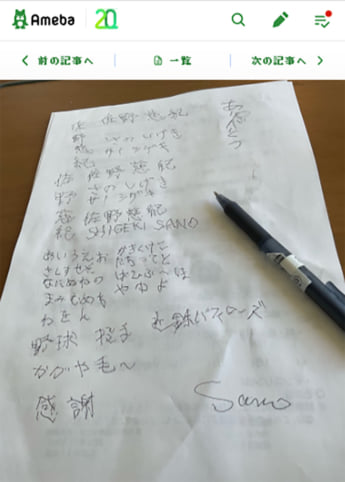 Ameba 20
前の記事へ 一覧 次の記事へ
佐 佐野慈紀
野 さの しげき
慈
紀
佐 佐野慈紀
野 さの しげき
慈 佐野慈紀
紀 SHIGEKI SANO
あいうえお かきくけこ
さしすせそ たちつてと
なにぬねの はひふへほ
まみむめも やゆよ
わをん
野球 投手 近鉄バファローズ
感謝 Sano